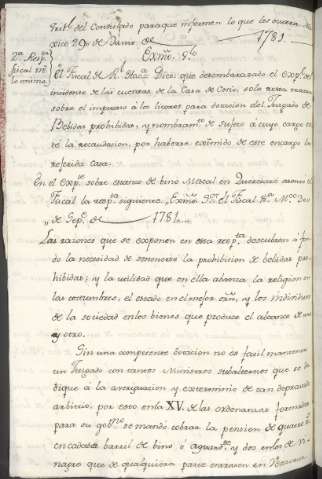 Trib.l del Consulado para que informen lo que les ocurra. Me-
xico 29,, de Dizmr.e de 1781.
2.a Resp.ta
fiscal en
lo mismo.
Exmô. S.or
El Fiscal de R.l Haz.da Dice: que desembarazado el Exp.te del
incidente de las cuentas de la Casa de Cosio, solo resta
sobre el impuesto à los licores para dotacion del Juzgado de
Bebidas prohibidas, y nombram.to de sujeto à cuyo cargo es-
té la recaudacion, por haberse eximido de este encargo la
referida casa.
En el Exp.te sobre estanco de bino Mescal en Queretaro
Fiscal la resp.ta siguiente. Exmô. S.or el Fiscal
,, de Sep.e de 1781
Las razones que se exponen en esta resp.ta, descubren à fon-
do la necesidad de sostenerse la prohibicion de bebidas pro-
hibidas, y la utilidad que en ella afianza la religion en
las costumbres, el estado en el mejor y los individuos
de la sociedad en los bienes que produce el alcance de uno
y otro.
Sin una competente dotacion no es facil mantener
un Juzgado con tantos Ministros subalternos que se de-
dique à la averiguacion y exterminio de tan depravado
arbitrio; por esto en la XV. de las ordenanzas formadas
para su gob.no se mandó cobrar la pension de quatro r.s
en cada barril de bino, ò aguard.te y dos en los de Vi-
nagre que de qualquiera parte entrasen en Veracruz